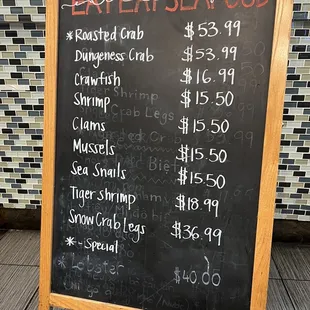 EAT EAT SEAFOOD
*Roasted Crab $53.99
Dungeness Crab $53.99
Crawfish $16.99
Shrimp $15.50
Clams $15.50
Mussels $15.50
Sea Snails $15.50
Tiger shrimp $18.99
Snow Crab Legs $36.99
* - Special
*Lobster $40.00